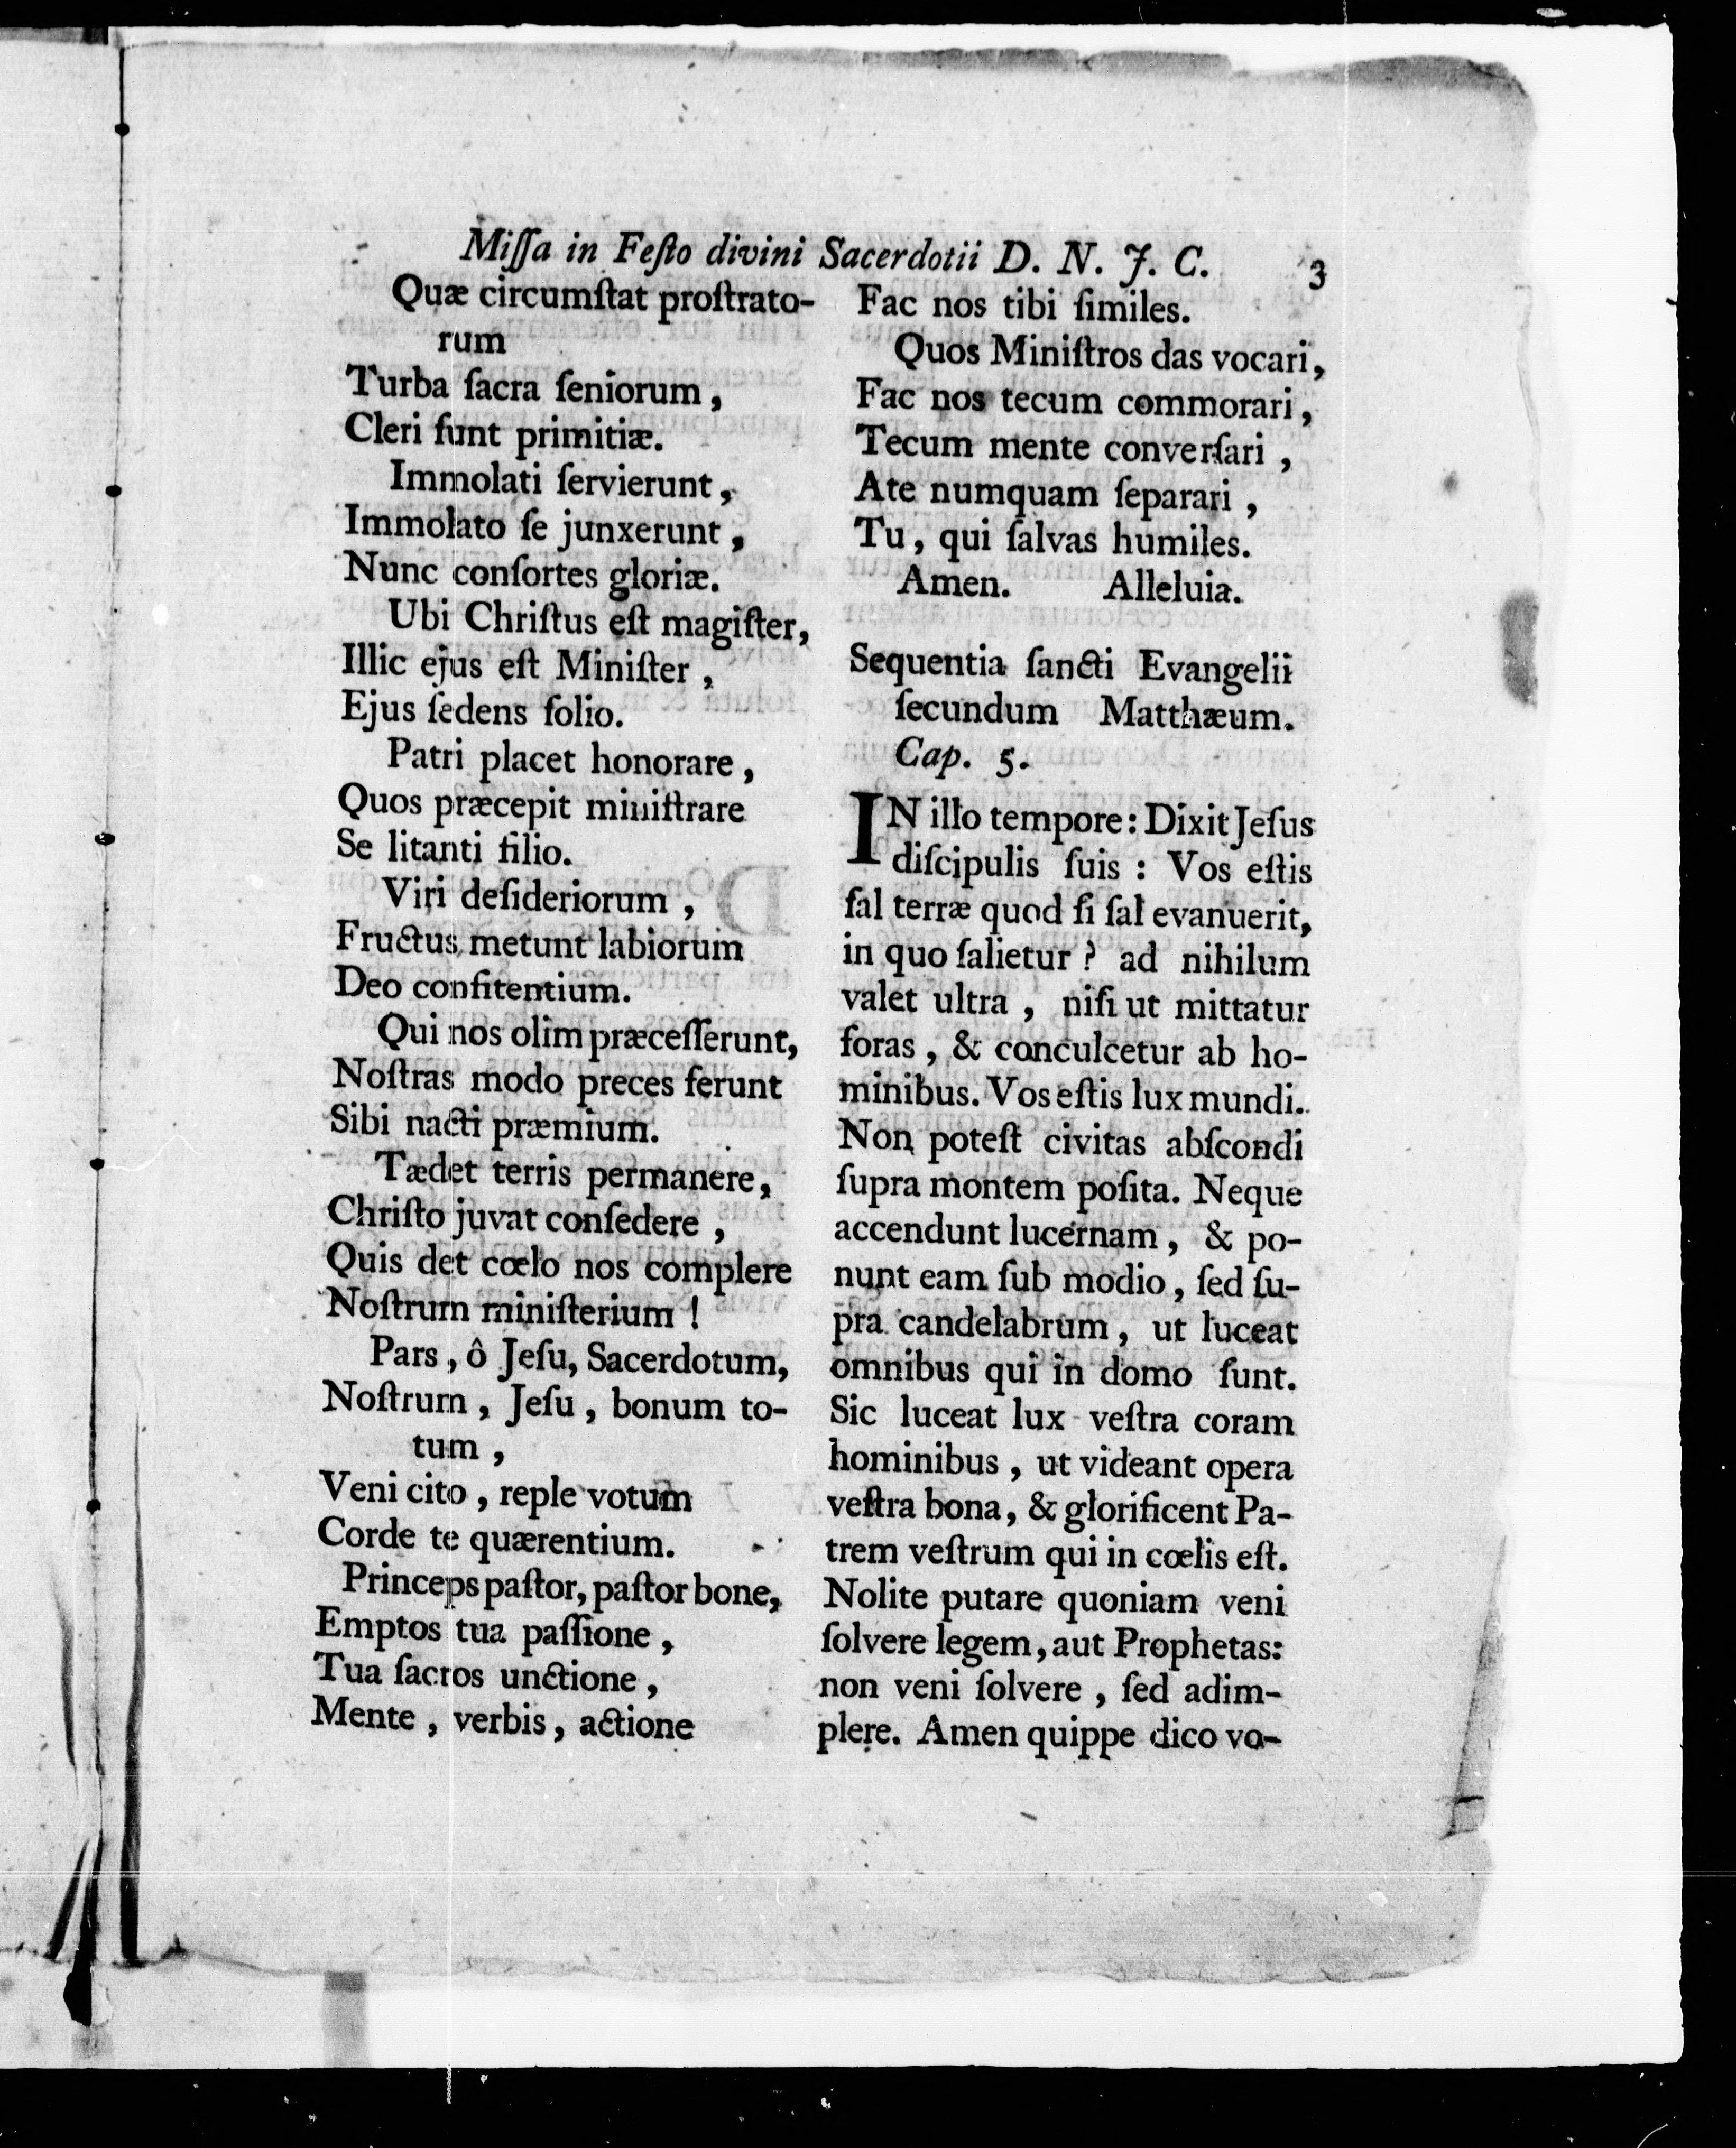 Miſſa in Feſto divini Sacerdotii D. N. J. C. 3
Quæ circumſtat proſtrato-
rum
Turba ſacra ſeniorum,
Cleri ſunt primitiæ.
Immolati ſervierunt,
Immolato ſe junxerunt,
Nunc conſortes gloriæ.
Ubi Chriſtus eſt magiſter,
Illic ejus eſt Miniſter,
Ejus ſedens ſolio.
Patri placet honorare,
Quos præcepit miniſtrare
Se litanti filio.
Viri deſideriorum,
Fructus metunt labiorum
Deo confitentium.
Qui nos olim præceſſerunt,
Noſtras modo preces ferunt
Sibi nacti præmium.
Tædet terris permanere,
Chriſto juvat conſedere,
Quis det cœlo nos complere
Noſtrum miniſterium!
Pars, ô Jeſu, Sacerdotum,
Noſtrum, Jeſu, bonum to-
tum,
Veni cito, reple votum
Corde te quærentium.
Princeps paſtor, paſtor bone,
Emptos tua paſſione,
Tua ſacros unctione,
Mente, verbis, actione
Fac nos tibi ſimiles.
Quos Miniſtros das vocari,
Fac nos tecum commorari,
Tecum mente converſari,
Ate numquam ſeparari,
Tu, qui ſalvas humiles.
Amen. Alleluia.
Sequentia ſancti Evangelii
ſecundum Matthæum.
Cap. 5.
IN illo tempore: Dixit Jeſus
diſcipulis ſuis: Vos eſtis
ſal terræ quod ſi ſal evanuerit,
in quo ſalietur? ad nihilum
valet ultra, niſi ut mittatur
foras, & conculcetur ab ho-
minibus. Vos eſtis lux mundi.
Non poteſt civitas abſcondi
ſupra montem poſita. Neque
accendunt lucernam, & po-
nunt eam ſub modio, ſed ſu-
pra candelabrum, ut luceat
omnibus qui in domo ſunt.
Sic luceat lux veſtra coram
hominibus, ut videant opera
veſtra bona, & glorificent Pa-
trem veſtrum qui in cœlis eſt.
Nolite putare quoniam veni
ſolvere legem, aut Prophetas:
non veni ſolvere, ſed adim-
plere. Amen quippe dico vo-